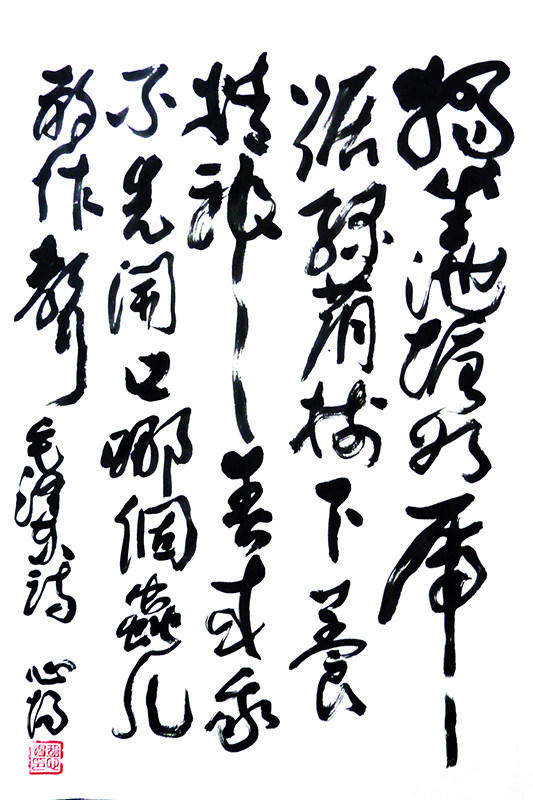 獨坐池塘如虎
踞綠蔭樹下養
精神春來我
不先開口哪個蟲儿
敢作聲
毛澤東詩
心